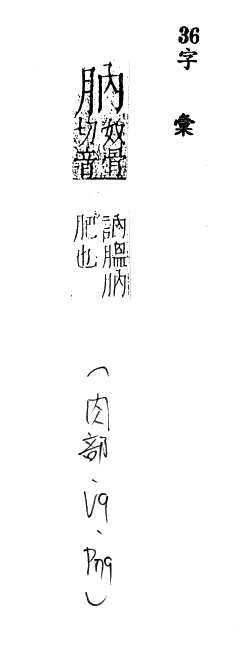 36
字彙
肭
奴骨
切音
訥膃肭
肥也
(肉部、V9、